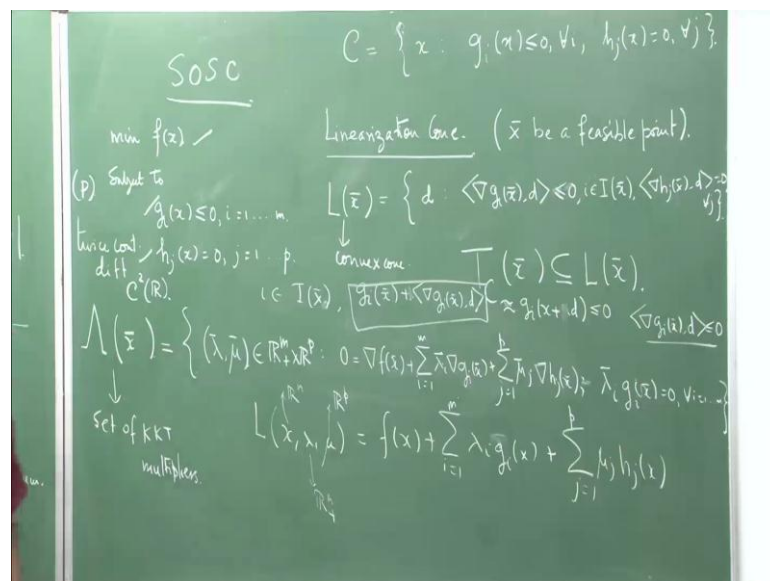 SOSC
C = { x : g_i(x) ≤ 0, ∀i, h_j(x) = 0, ∀j }.
min f(x)
(P) Subject to
g_i(x) ≤ 0, i = 1 ... m.
twice cont. diff h_j(x) = 0, j = 1 .. p.
C²(R).
Linearization Cone. (x̄ be a feasible point).
L(x̄) = { d : <∇g_i(x̄), d> ≤ 0, i ∈ I(x̄), <∇h_j(x̄), d> = 0 ∀j }
convex cone.
T_C(x̄) ⊆ L(x̄).
i ∈ I(x̄), g_i(x̄) + <∇g_i(x̄), d> ≈ g_i(x + d) ≤ 0
<∇g_i(x̄), d> ≤ 0
Λ(x̄) = { (λ̄, μ̄) ∈ R^m_+ × R^p : 0 = ∇f(x̄) + Σ_{i=1}^m λ̄_i ∇g_i(x̄) + Σ_{j=1}^p μ̄_j ∇h_j(x̄), λ̄_i g_i(x̄) = 0, ∀i = 1... }
Set of KKT
multipliers.
R^n R^p
L(x, λ, μ) = f(x) + Σ_{i=1}^m λ_i g_i(x) + Σ_{j=1}^p μ_j h_j(x)